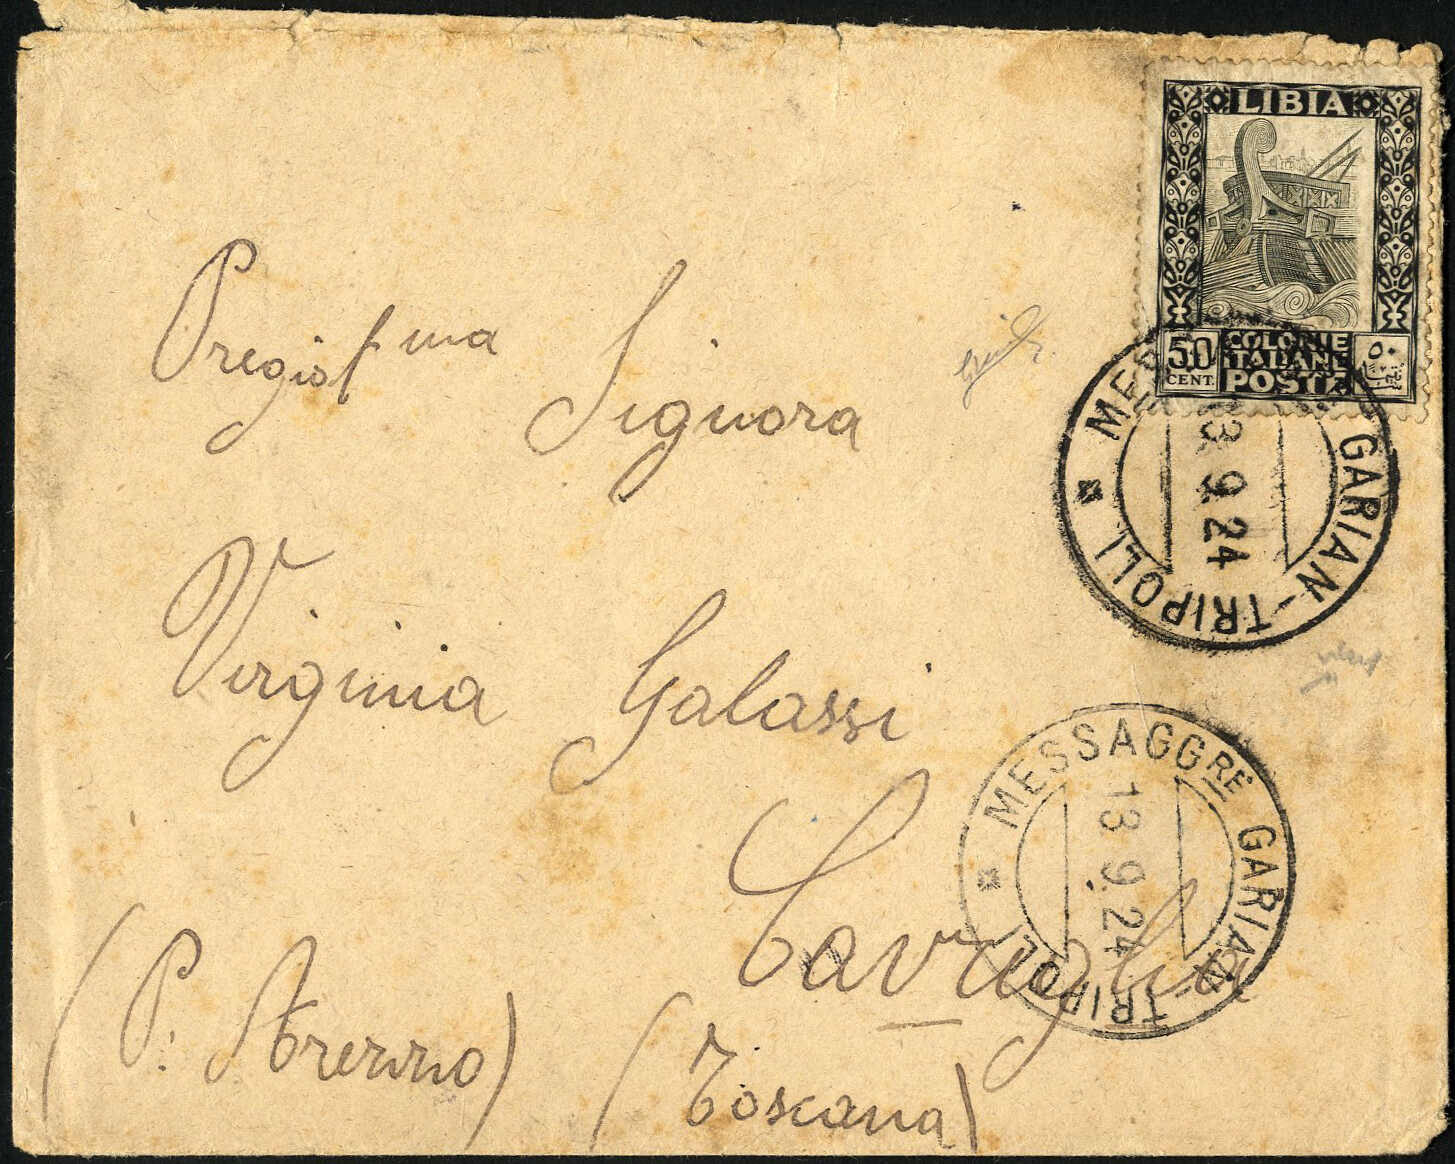 LIBIA
50
CENT.
COLONIE
ITALIANE
POSTE
٥٠
Pregiat ma Signora
Virginia Galassi
Cavriglia
(P. Arezzo) (Toscana)
GARIAN-TRIPOLI
13 9.24
MESSAGGRE GARIAN-TRIPOLI
13 9.24